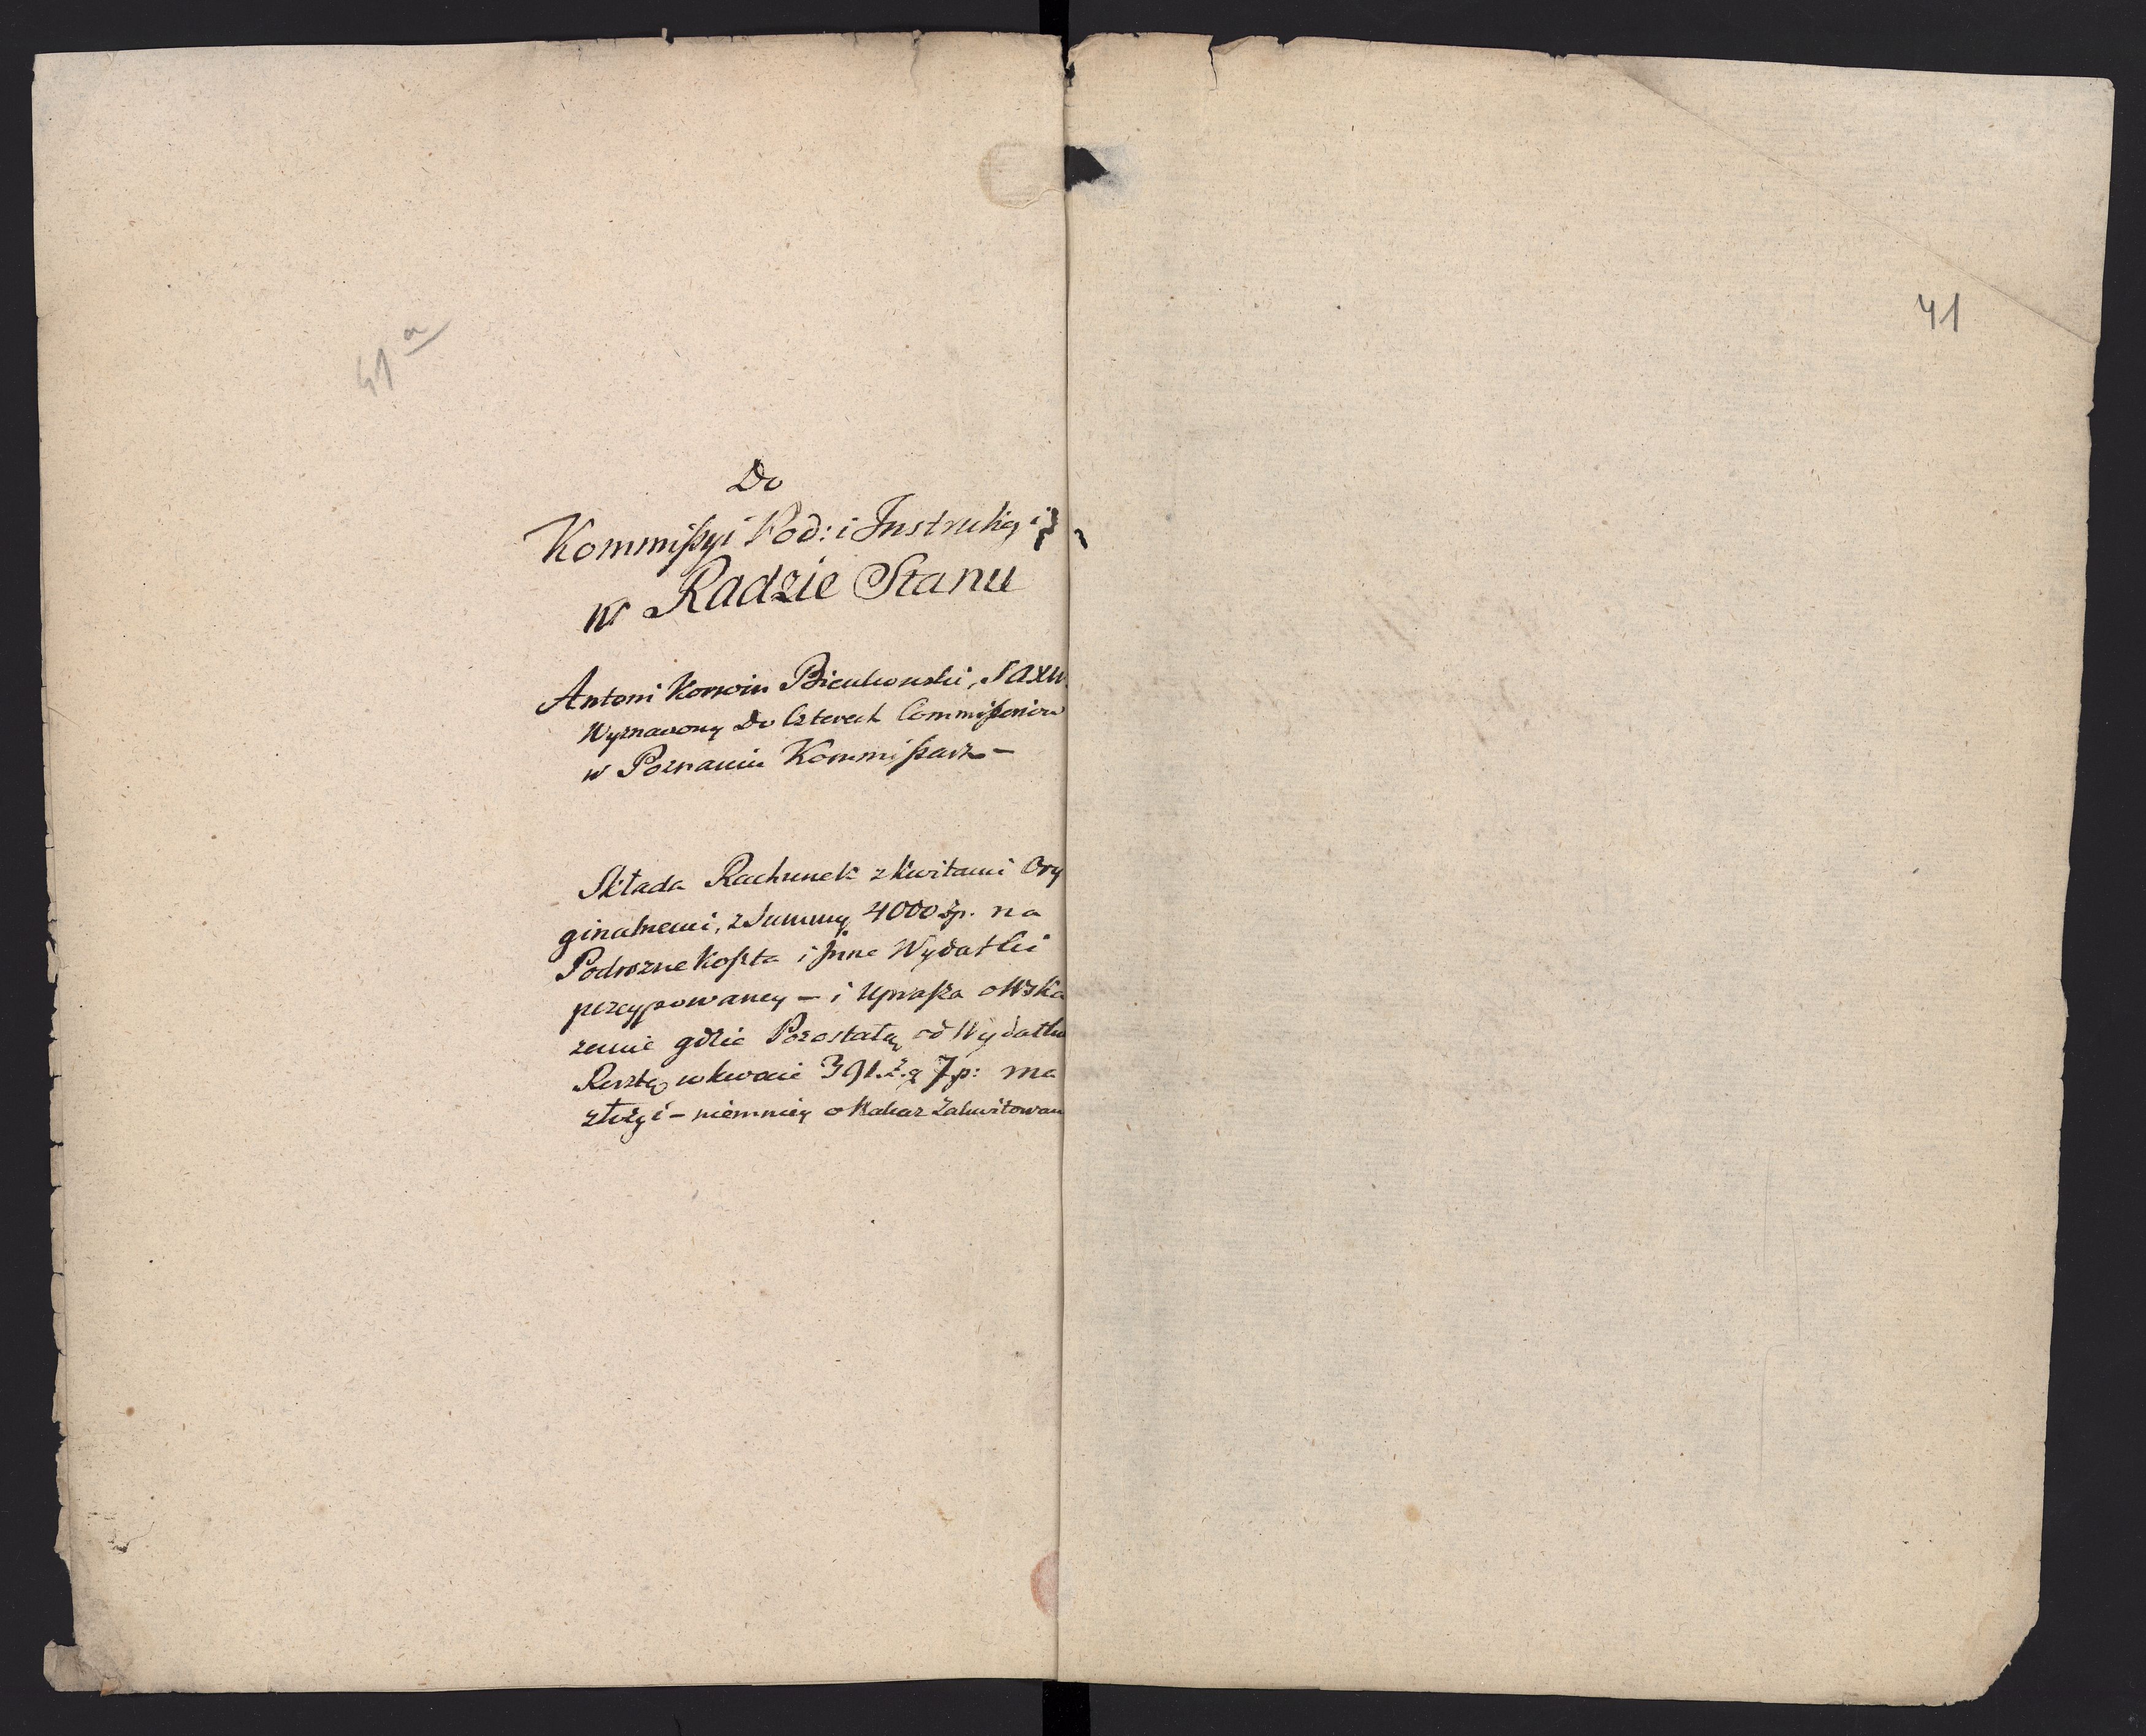 41 a
41
Do
Kommißyi Pod: i Instrukcyi
w Radzie Stanu
Antoni Korwin Bieńkowski,
Wyznaczony Do Czterech Commißoriow
w Poznaniu Kommißarz –
Składa Rachunek z kwitami Ory
ginalnemi, z Summy 4000 Zp. na
Podrozne koszta i Jnne Wydatki
percypowaney – i Uprasza o Wska
zanie gdzie Pozostałą od Wydatku
Resztę w kwocie 391. Z. g 7 p: ma
złożyć – niemniey o Nakaz Zakwitowan